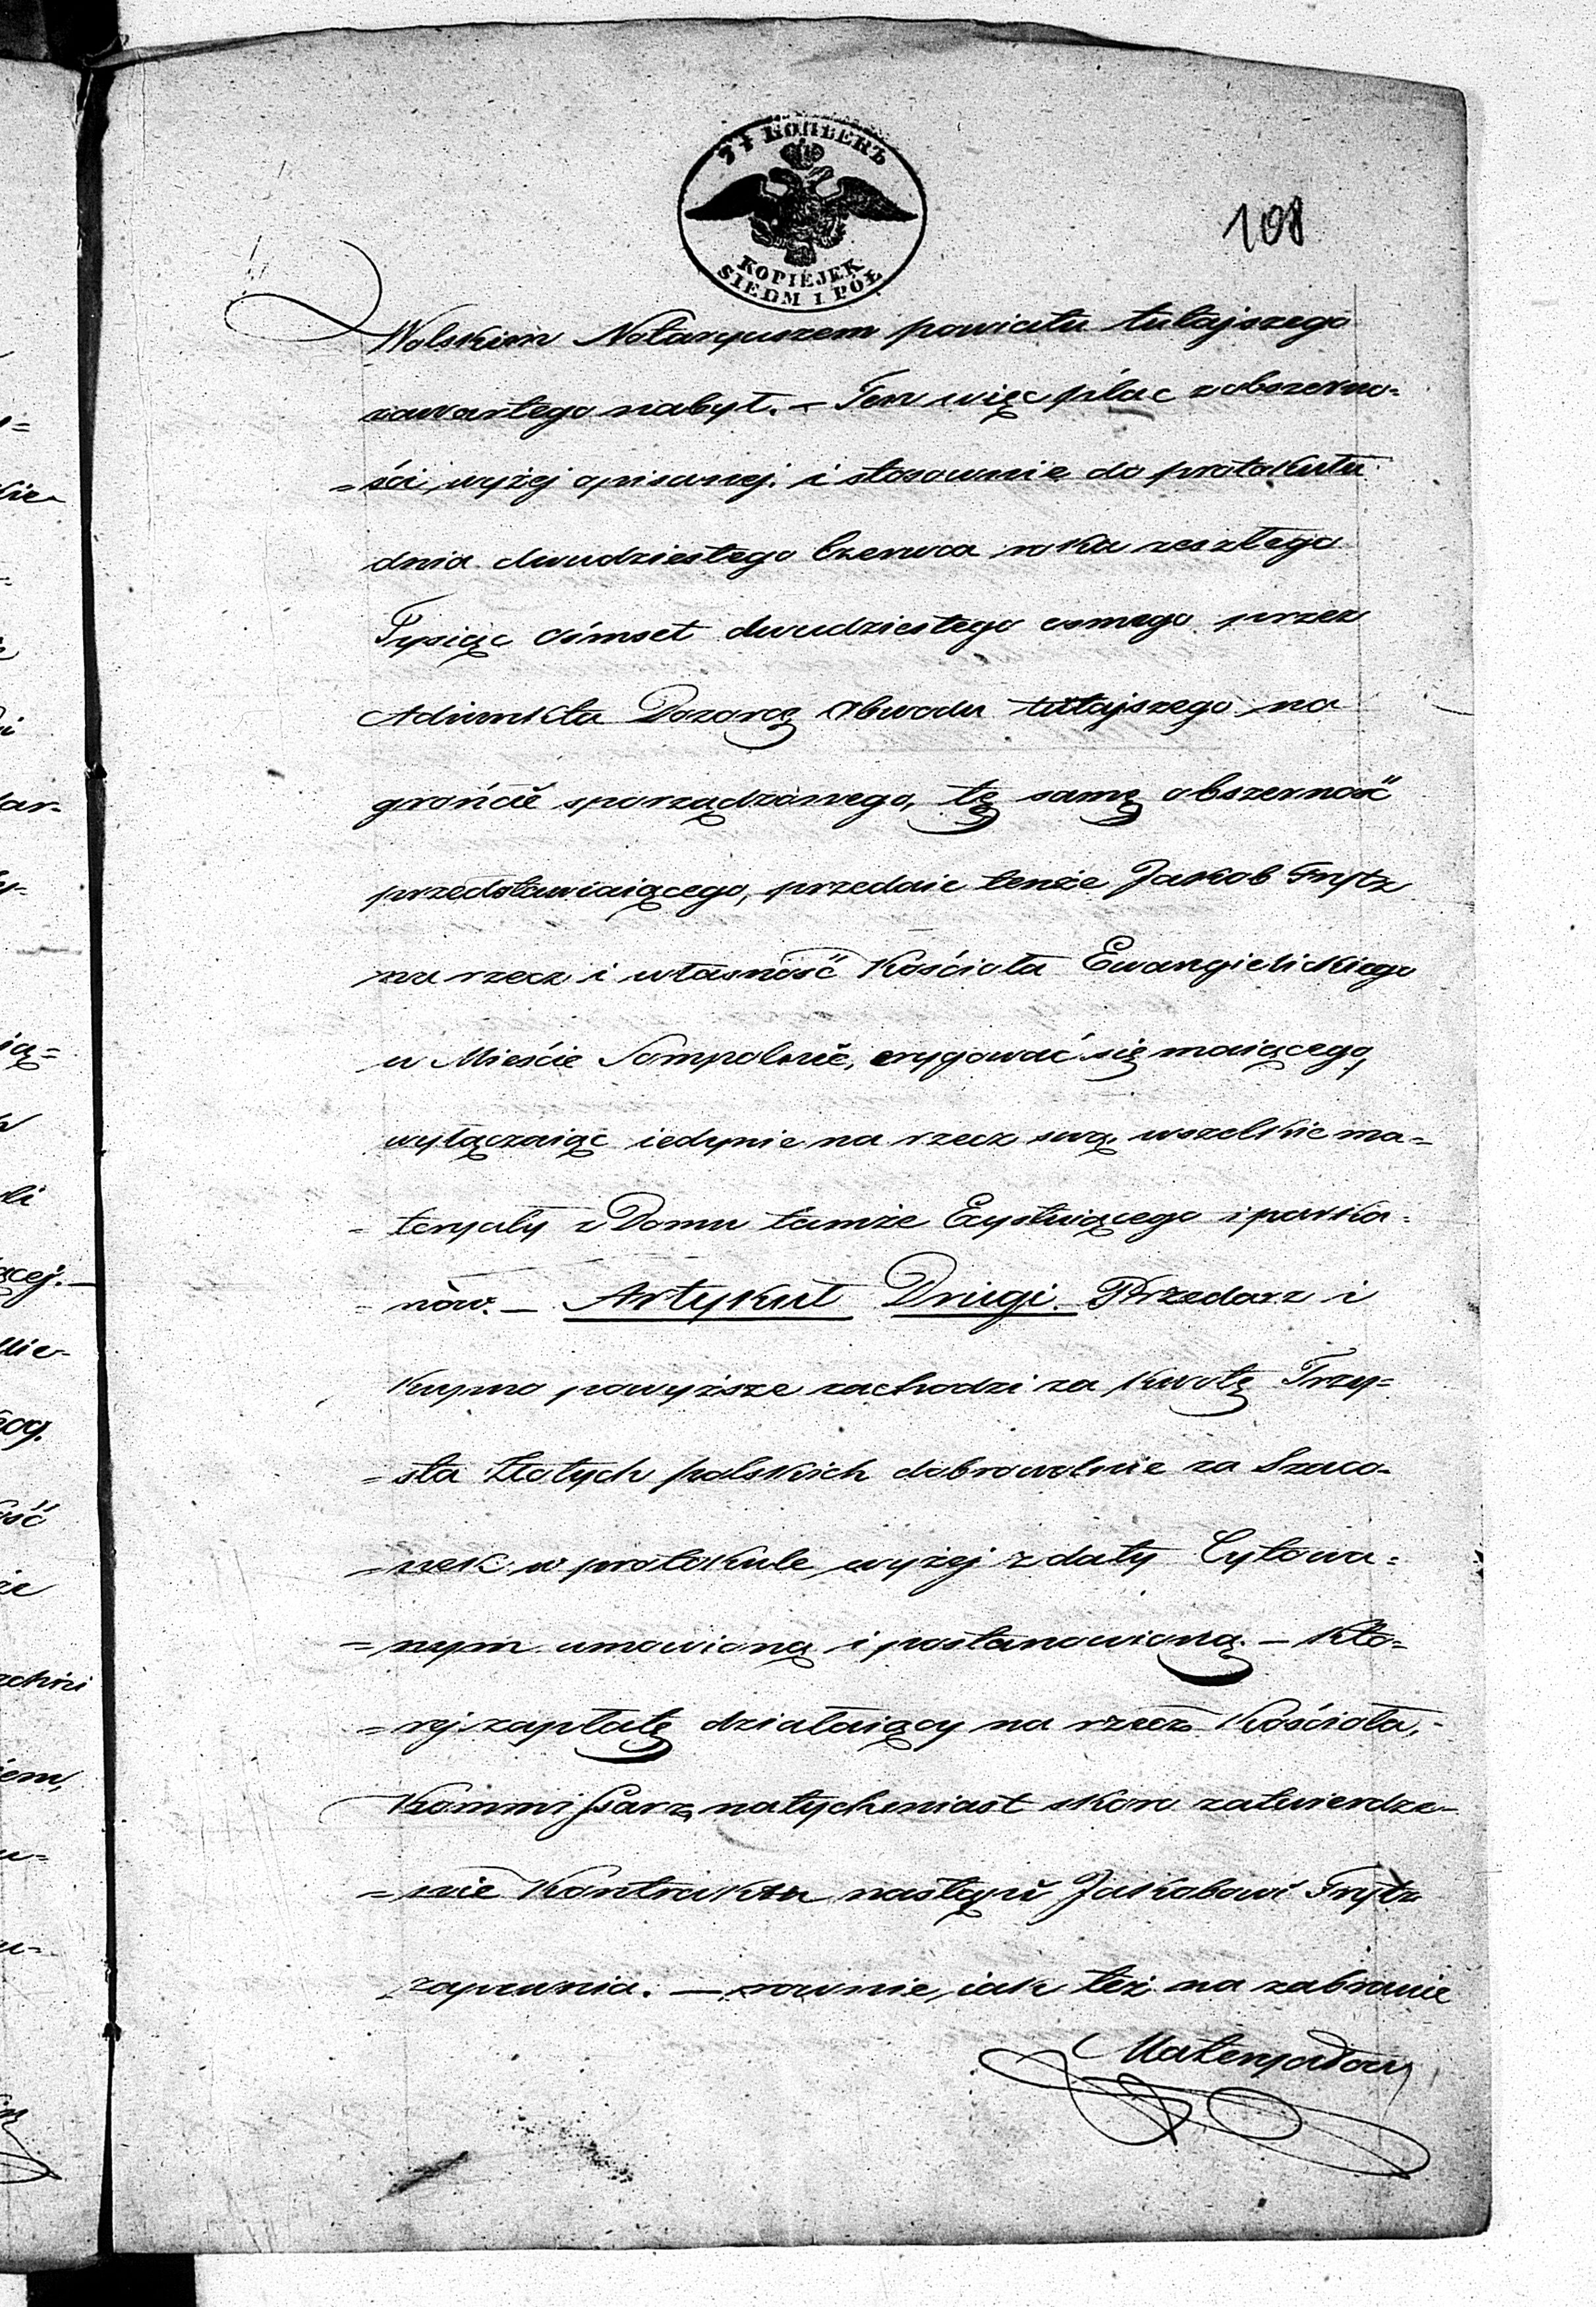 7½ КОПѢЕКЪ
KOPIEJEK
SIEDM I PÓŁ
108
Wolskim Notaryuszem powiatu tutajszego
zawartego nabył. – Ten więc plac z obszerno=
=ści wyżej opisanej i stosownie do protokułu
dnia dwudziestego Czerwca roku zeszłego
Tysiąc ośmset dwudziestego osmego przez
Adiunkta Dozorcę Obwodu tutajszego na
gróńcie sporządzonego, tę samę obszerność
przedstawiaiącego, przedaie tenże Jakob Frytz
na rzecz i własność Kościoła Ewangielickiego
w Mieście Sompolnie, erygować się maiącego,
wyłączaiąc iedynie na rzecz swą wszelkie ma=
=teryały z Domu tamże Exystuiącego i parka=
=nów. – Artykuł Drugi. Przedarz i
kupno powyższe zachodzi za kwotę Trzy=
=sta Złotych polskich dobrowolnie za Szacu=
=nek w protokule wyżej z daty Cytowa=
=nym umowioną i postanowioną. – Kto=
=rej zapłatę działaiący na rzecz Kościoła,
Kommissarz, natychmiast skoro zatwierdze=
=nie Kontraktu nastąpi Jakobowi Frytz
zapewnia. – rownie, iak też na zabranie
Materyałow